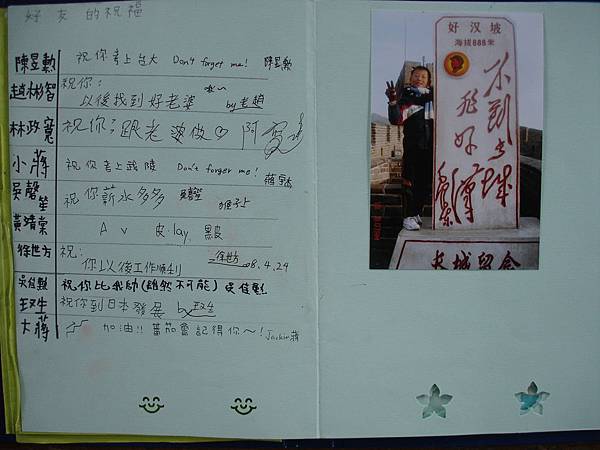 好友的祝福
陳昱勳 祝你考上台大 Don't forget me! 陳昱勳
趙彬智 祝你:
以後找到好老婆 by 老趙
林政寬 祝你:跟老婆做♡ 阿寬
小蔣 祝你考上武陵 Don't forget me! 蔣宇杰
吳馨笙 祝你薪水多多 吳馨笙
黃靖棠 A v 皮.lay.
徐世方 祝:
你以後工作順利 徐世方 8.4.24
吳佳勳 祝你比我帥(雖然不可能) 吳佳勳
珏生 祝你到日本發展 by 珏生
大蔣 加油!! 蕃茄會記得你~! Jackie蔣
好汉坡
海拔888米
不到长城非好汉
毛泽东
长城留念